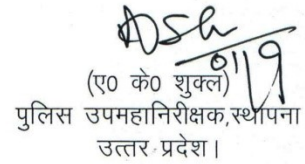 (ए० के० शुक्ल)
पुलिस उपमहानिरीक्षक,स्थापना
उत्तर प्रदेश।